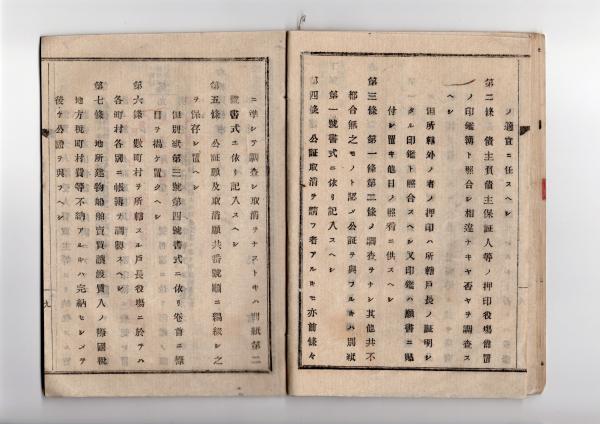 ノ適宜ニ任スヘシ
第二條 債主負債主保証人等ノ押印役場備置
ノ印鑑簿ト照合シ相違ナキヤ否ヤヲ調査ス
ヘシ
但所轄外ノ者ノ押印ハ所轄戸長ノ証明シ
タル印鑑ト照合スヘシ又印鑑ハ願書ニ貼
付シ置キ他日ノ照看ニ供スヘシ
第三條 第一條第二條ノ調査ヲナシ其他共不
都合無之モノト認メ公証ヲ與フルキハ別紙
第一號書式ニ依リ記入スヘシ
第四條 公証取消ヲ請フ者アルキモ亦前條々
ニ準シテ調査シ取消ヲナストキハ別紙第二
號書式ニ依リ記入スヘシ
第五條 公証願及取消願共番號順ニ編綴シ之
ヲ保存シ置ヘシ
但別紙第三號第四號書式ニ依リ卷首ニ條
目ヲ揭ケ置クヘシ
第六條 數町村ヲ所轄スル戸長役場ニ於テハ
各町村各別ニ帳簿ヲ調製スヘシ
第七條 地所建物船舶賣買讓渡質入ノ際國稅
地方稅町村費等不納アルハ完納セシメテ
後ケ公證ヲ與フヘシ
九